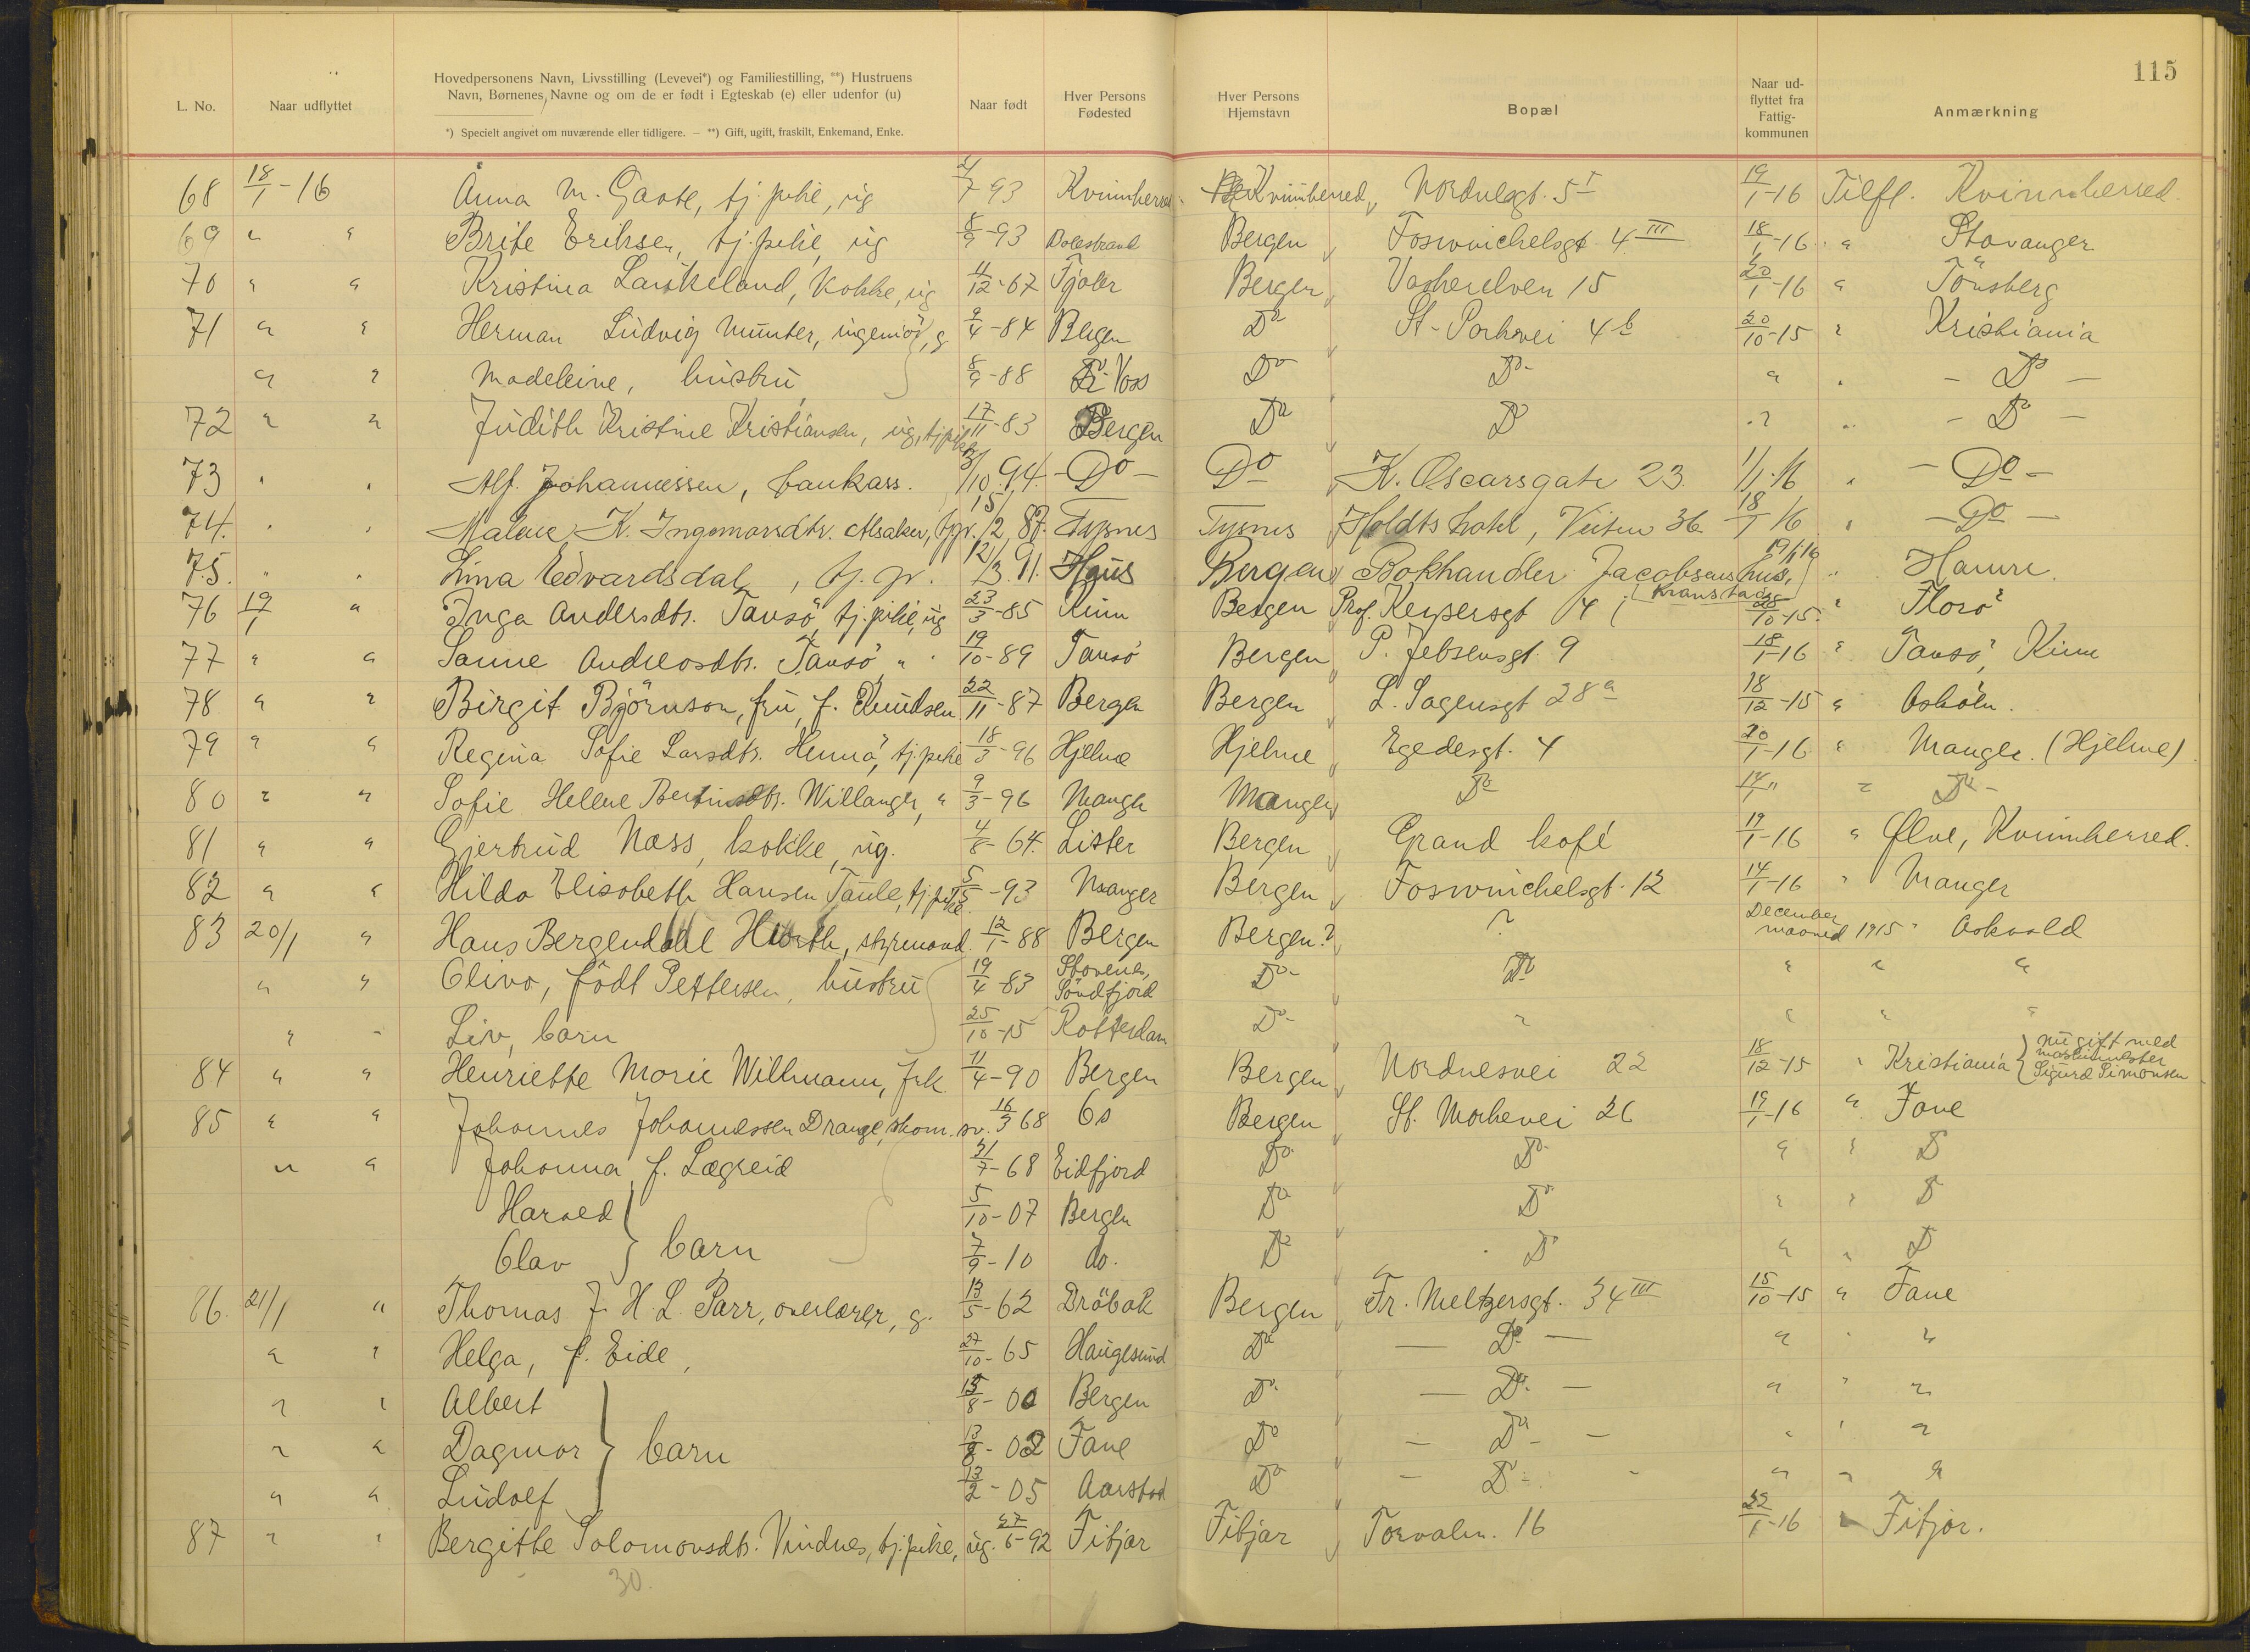 115
L. No.
Naar udflyttet
Hovedpersonens Navn, Livsstilling (Levevei*) og Familiestilling, **) Hustruens
Navn, Børnenes Navne og om de er født i Egteskab (e) eller udenfor (u)
*) Specielt angivet om nuværende eller tidligere. — **) Gift, ugift, fraskilt, Enkemand, Enke.
Naar født
Hver Persons
Fødested
Hver Persons
Hjemstavn
Bopæl
Naar ud-
flyttet fra
Fattig-
kommunen
Anmærkning
68 18/1-16 Anna M. Gaote, tj.pike, ug /7-93 Kvinnherred Kvinnherred Nordnesgt. 5 I 19/1-16 Tilfl. Kvinnherred
69 " " Brite Eriksen, tj.pike, ug 8/9-93 Bolestrand Bergen Foswinckelsgt 4 III 18/1-16 " Stavanger
70 " " Kristina Laukeland, kokke, ug 11/12-67 Fjaler Bergen Vaskerelven 15 20/1-16 " Tönsberg
71 " " Herman Ludvig Munter, ingeniör, g 9/4-84 Bergen Do St. Parkvei 4b 20/10-15 " Kristiania
" " Madeleine, hustru 8/9-88 Voss Do Do " " - Do -
72 " " Judith Kristine Kristiansen, ug, tj.pike 17/11-83 Bergen Do Do " " - Do -
73 " " Alf Johannessen, bankass. /10.94. - Do - Do K. Oscarsgate 23 11/1.16 " - Do -
74. " " Malene K. Ingemarsdtr. Alsaker, tj.p. 15/12 87. Tysnes Tysnes Holdts hotel, Veiten 3b 18/1 16 " - Do -
75. " " Lina Edvardsdal, tj. p. 12/3.91. Haus Bergen Bokhandler Jacobsens hus, Kranstadv. 19/1 16 " Hamre.
76 19/1 " Inga Andersdtr. Tansö tj.pike, ug 23/3-85 Kinn Bergen Prof. Keysersgt 4 28/10-15 " Florö
77 " " Sanne Andreasdtr. Tansö " " 19/10-89 Tansö Bergen P. Jebsensgt. 9 18/1-16 " Tansö, Kinn
78 " " Birgit Björnson, fru, f. Knudsen 22/11-87 Bergen Bergen L. Sagensgt 28a 18/12-15 " Asköen.
79 " " Regina Sofie Larsdtr. Hennö, tj.pike 18/3-96 Hjelme Hjelme Egedesgt. 4 20/1-16 " Manger. (Hjelme)
80 " " Sofie Helene Bertinsdtr. Willanger, " 9/3-96 Manger Manger Do 14/1 " " Do -
81 " " Gjertrud Næss, kokke, ug. 4/8-64. Lister Bergen Grand kafé 19/1-16 " Ølve, Kvinnherred.
82 " " Hilda Elisabeth Hansen Taule, tj.pike 5/5-93 Manger Bergen Foswinckelsgt. 12 14/1-16 " Manger
83 20/1 " Hans Bergendahl Hiorth, styrmand. 12/1-88 Bergen Bergen? ? December maaned 1915 " Askvold
" " Oliva, født Pettersen, hustru 19/4-83 Stavenes, Söndfjord Do Do " " "
" " Liv, barn 25/10-15 Rotterdam Do " " " "
84 " " Henriette Marie Willmann, frk. 11/4-90 Bergen Bergen Nordnesvei 22 18/12-15 " Kristiania } nu gift med maskinmester Sigurd Simonsen
85 " " Johannes Johannessen Drange, skom. sv. 16/3 68 Os Bergen St. Markevei 26 19/1-16 " Fane
" " Johanna f. Lægreid 21/7-68 Eidfjord Do Do " " D
Harald 5/10-07 Bergen Do Do " " D
Olav } barn 7/9-10 do. Do Do " " D
86. 21/1 " Thomas J. H. L. Parr, overlærer, g. 13/5-62 Dröbak Bergen Fr. Meltzersgt. 34 III 15/10-15 " Fane
" " Helga, f. Eide, 27/10-65 Haugesund Do — Do — " " "
" " Albert 15/8-00 Bergen Do — Do — " " "
" " Dagmar } barn 13/8-02 Fane Do - Do - " " "
" " Ludolf 13/2-05 Aarstad Do - Do - " " "
87 " " Bergitte Solomonsdtr. Vindnes, tj.pike, ug. 27/6-92 Fitjar Fitjar Torvalm. 16 22/1-16 " Fitjar.
30.